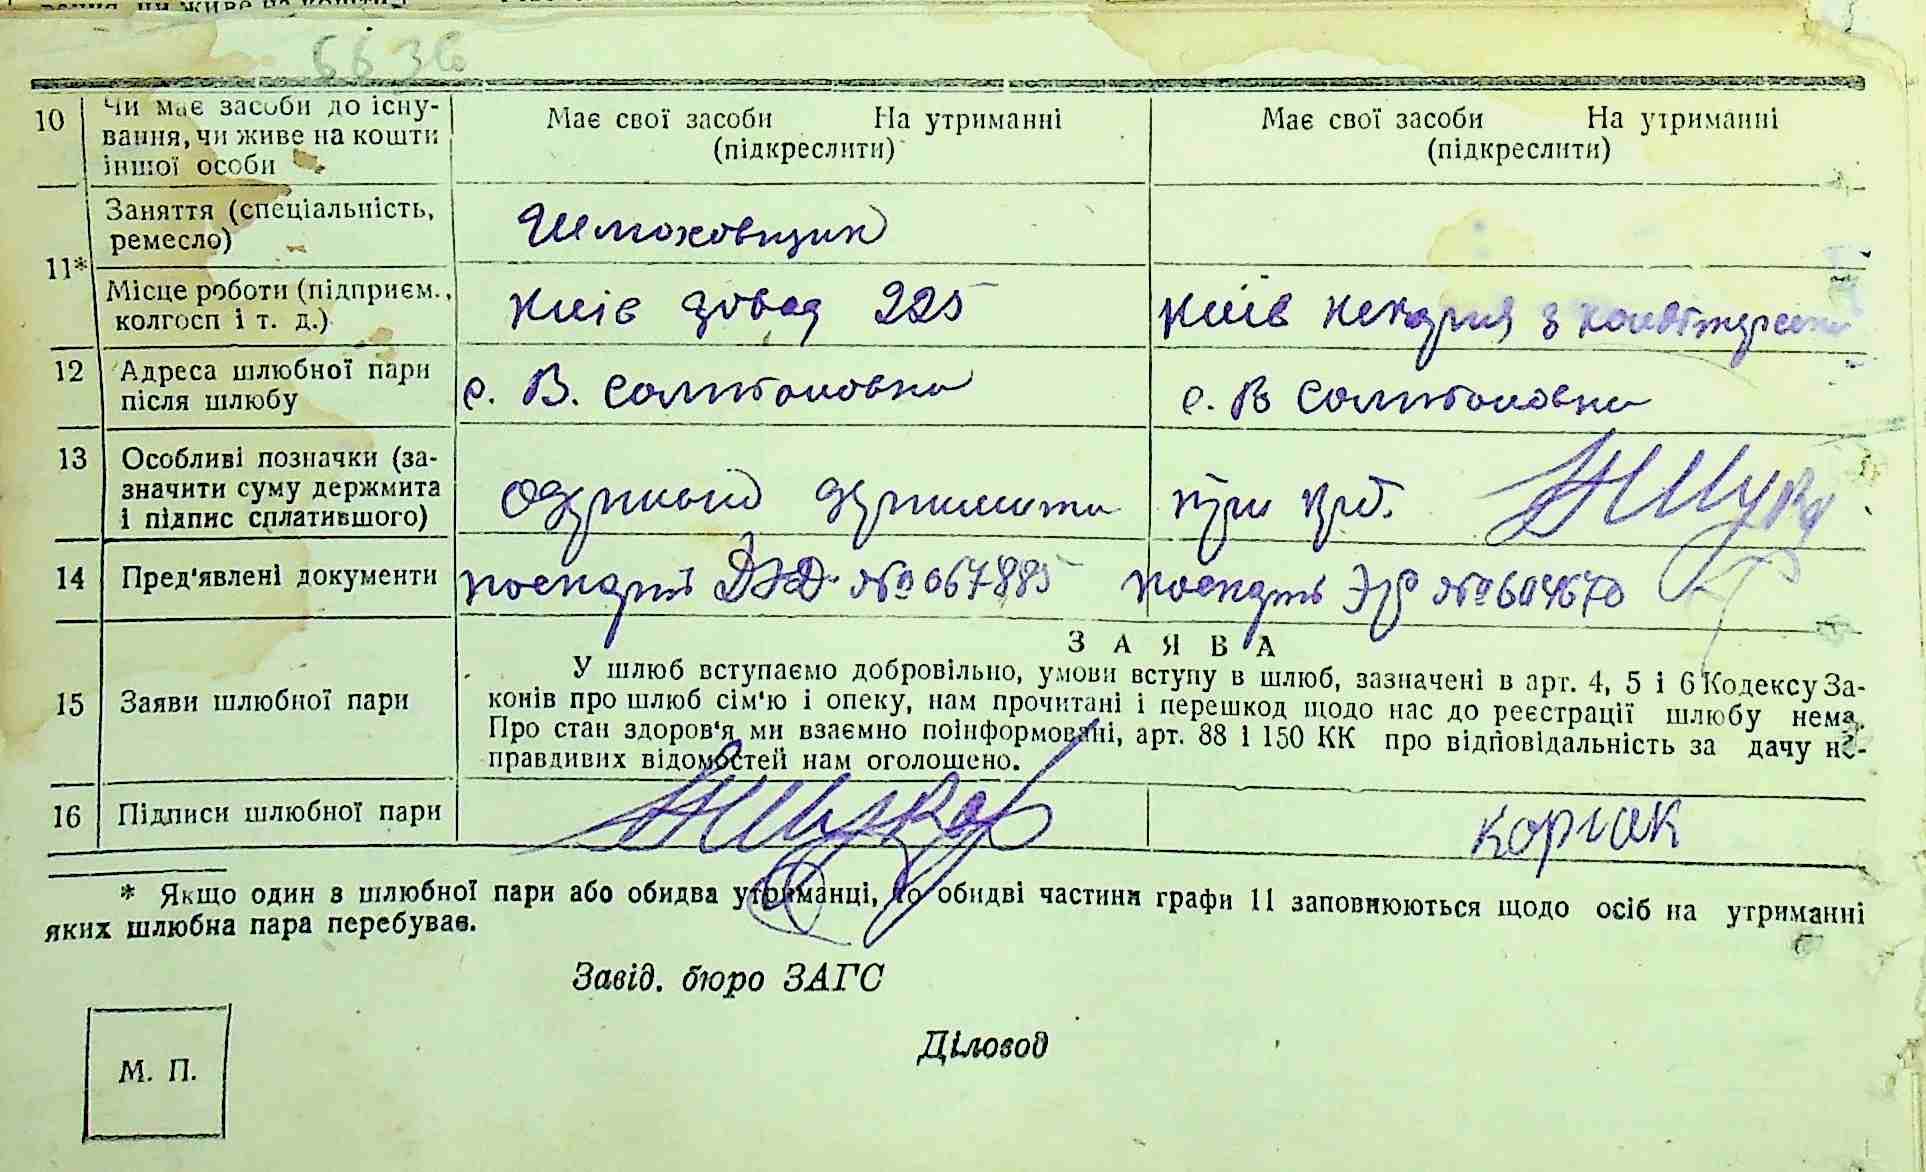 6636
10 Чи має засоби до існу-
вання, чи живе на кошти
іншої особи
Має свої засоби На утриманні
(підкреслити)
Має свої засоби На утриманні
(підкреслити)
11*
Заняття (спеціальність,
ремесло)
Місце роботи (підприєм.,
колгосп і т. д.)
Київ завод 225
Київ
12 Адреса шлюбної пари
після шлюбу
с. В. Солтановка
с. В Солтановка
13 Особливі позначки (за-
значити суму держмита
і підпис сплатившого)
14 Пред'явлені документи
паспорт № 067885
паспорт № 604670
ЗАЯВА
15 Заяви шлюбної пари
У шлюб вступаємо добровільно, умови вступу в шлюб, зазначені в арт. 4, 5 і 6 Кодексу За-
конів про шлюб сім'ю і опеку, нам прочитані і перешкод щодо нас до реєстрації шлюбу нема.
Про стан здоров'я ми взаємно поінформовані, арт. 88 і 150 КК про відповідальність за дачу не-
правдивих відомостей нам оголошено.
16 Підписи шлюбної пари
Корчак
* Якщо один з шлюбної пари або обидва утриманці, то обидві частини графи 11 заповнюються щодо осіб на утриманні
яких шлюбна пара перебуває.
Завід. бюро ЗАГС
Діловод
М. П.